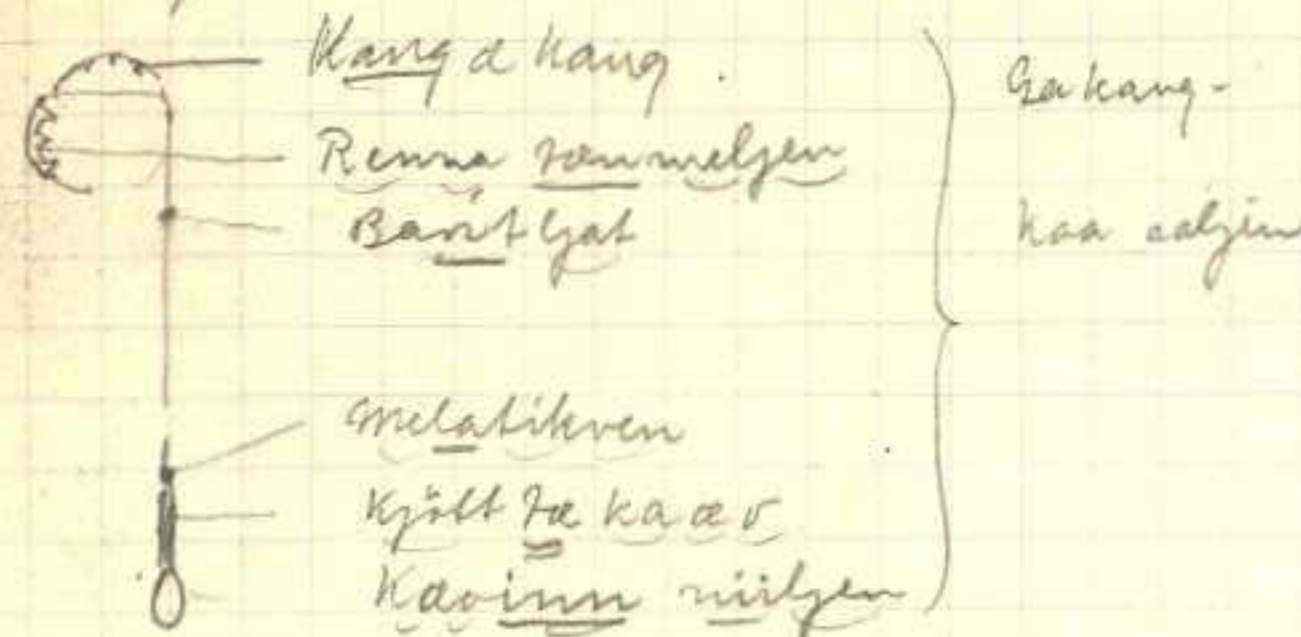 Kang a kang
Renna tæn meljen
Barit ljat
Melatikven
Kjött tæ kaæv
Kævinn niiljen
Gakang-
kaa aaljin